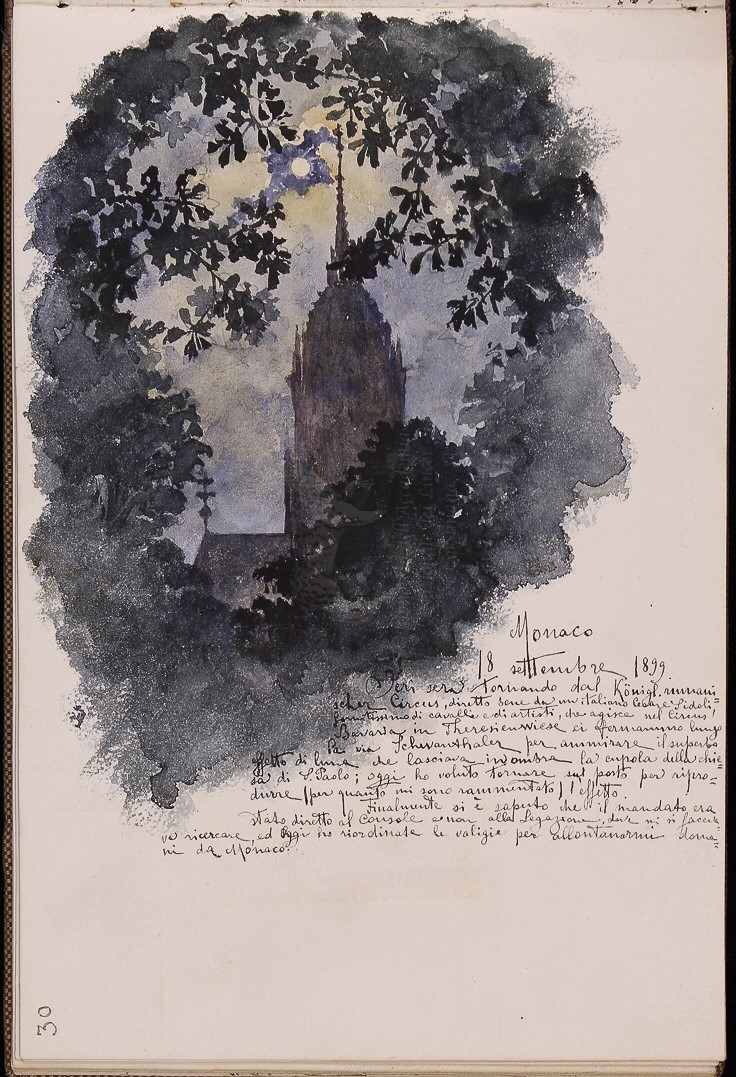 Monaco
18 settembre 1899.
Ieri sera tornando dal Königl. rumani=
scher Circus, diretto bene da un italiano Cesare Sidoli
fornitissimo di cavalli e di artisti, che agisce nel Circus
Bavaria in Theresienwiese ci fermammo lungo
la via Schwanthaler per ammirare il superbo
effetto di luna che lasciava in ombra la cupola della chie=
sa di S. Paolo; oggi ho voluto tornare sul posto per ripro=
durre (per quanto mi sono rammentato) l'effetto.
Finalmente si è saputo che il mandato era
stato diretto al Console e non alla Legazione, dove mi si facea=
va ricercare, ed oggi ho riordinate le valigie per allontanarmi doma=
ni da Monaco.
30